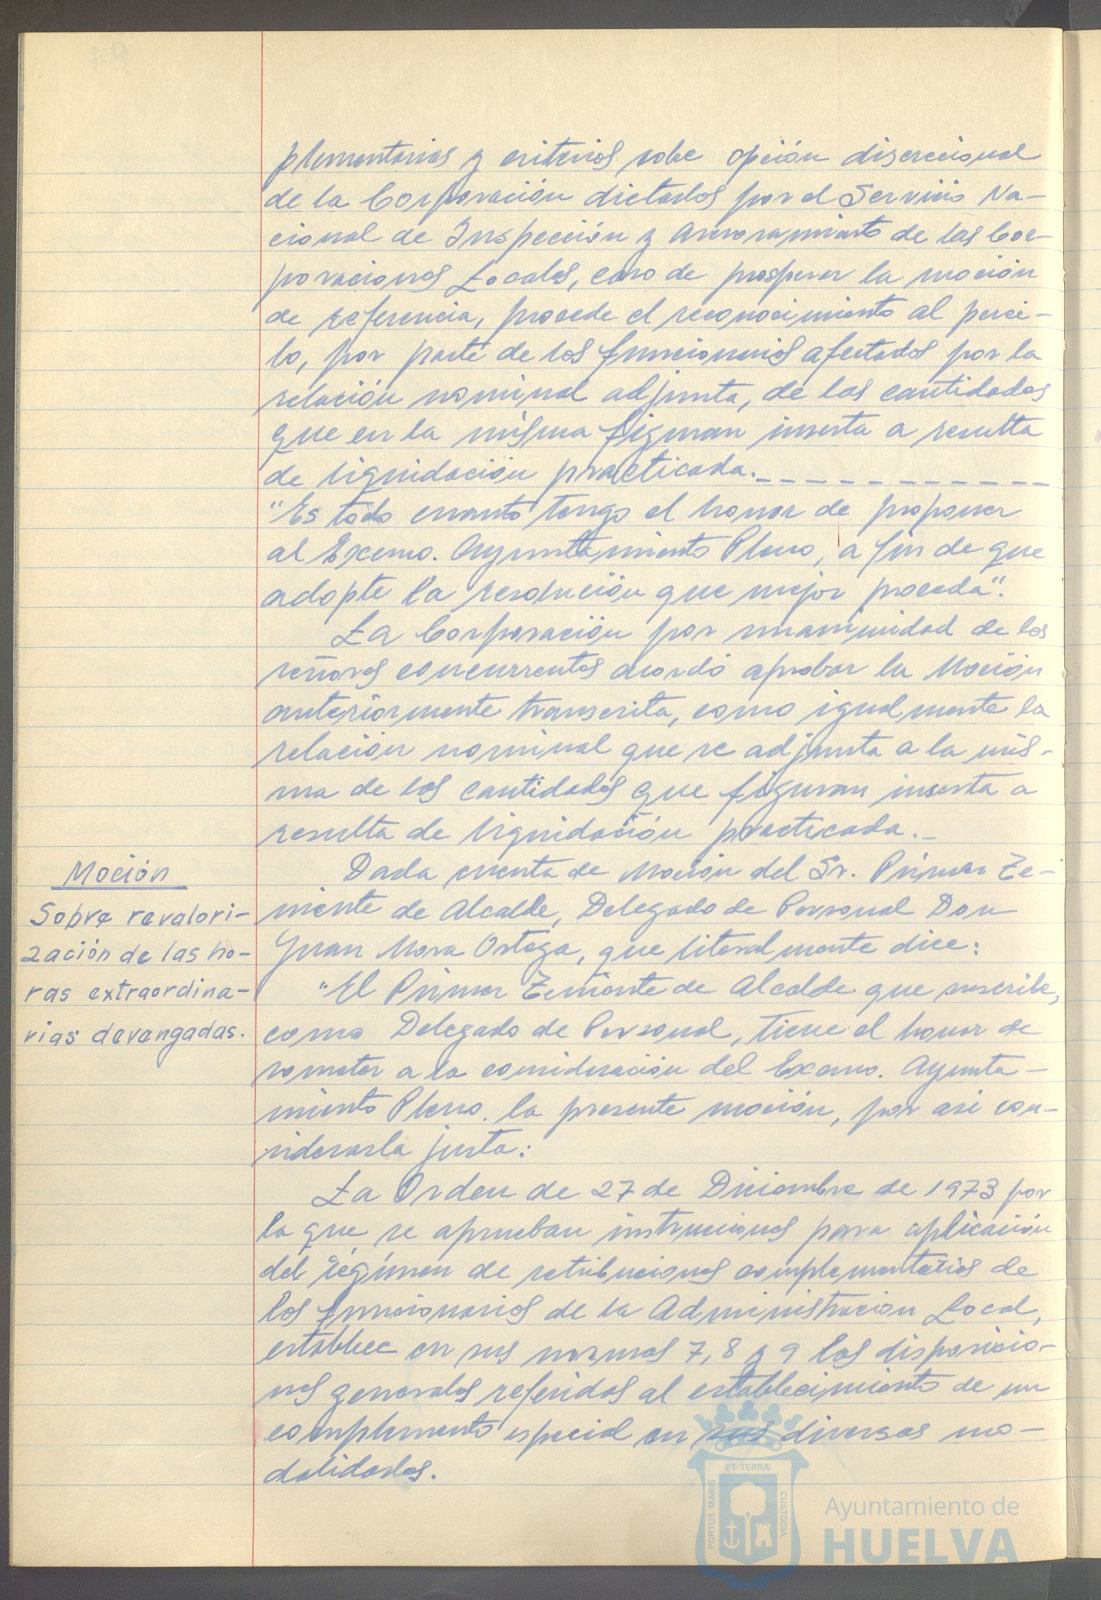 plementarias y criterios sobre opción discrecional
de la Corporación dictados por el Servicio Na-
cional de Inspección y Asesoramiento de las Cor-
poraciones Locales, caso de prosperar la moción
de referencia, procede el reconocimiento al perci-
bo, por parte de los funcionarios afectados por la
relación nominal adjunta, de las cantidades
que en la misma figuran inserta a resulta
de liquidación practicada.
"Es todo cuanto tengo el honor de proponer
al Excmo. Ayuntamiento Pleno, a fin de que
adopte la resolución que mejor proceda".
La Corporación por unanimidad de los
señores concurrentes acordó aprobar la Moción
anteriormente transcrita, como igualmente la
relación nominal que se adjunta a la mis-
ma de las cantidades que figuran inserta a
resulta de liquidación practicada.-
Moción
Sobre revalori-
zación de las ho-
ras extraordina-
rias devengadas.
Dada cuenta de Moción del Sr. Primer Te-
niente de Alcalde, Delegado de Personal Don
Juan Mora Ortega, que literalmente dice:
"El Primer Teniente de Alcalde que suscribe,
como Delegado de Personal, tiene el honor de
someter a la consideración del Excmo. Ayunta-
miento Pleno. la presente moción, por así con-
siderarla justa:
La Orden de 27 de Diciembre de 1973 por
la que se aprueban instrucciones para aplicación
del régimen de retribuciones complementarias de
los funcionarios de la Administración Local,
establece en sus normas 7, 8 y 9 las disposicio-
nes generales referidas al establecimiento de un
complemento especial en sus diversas mo-
dalidades.
ET TERRÆ
PORTUS MARIS
CUSTODIA
Ayuntamiento de
HUELVA